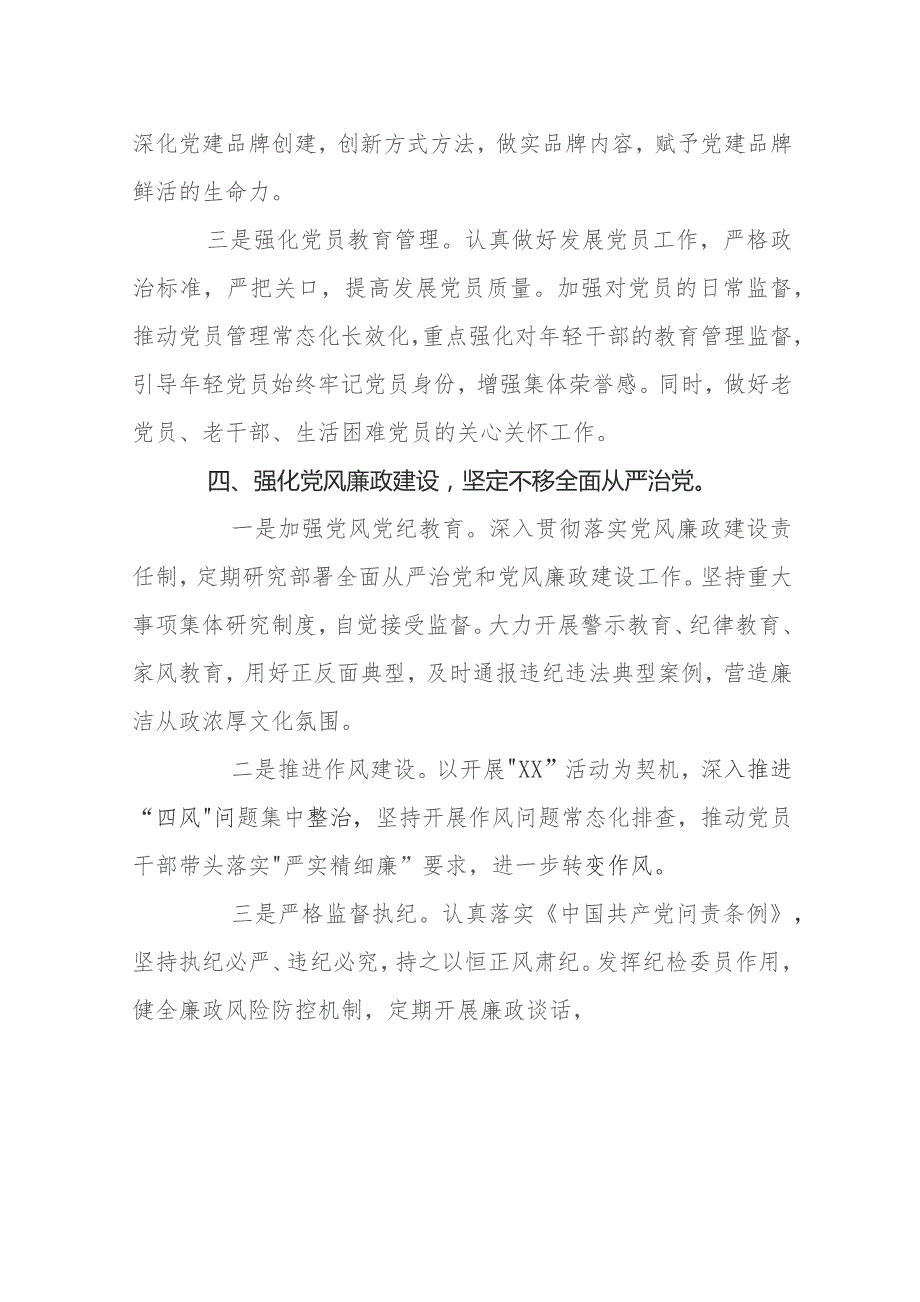 深化党建品牌创建，创新方式方法，做实品牌内容，赋予党建品牌
鲜活的生命力。
三是强化党员教育管理。认真做好发展党员工作，严格政
治标准，严把关口，提高发展党员质量。加强对党员的日常监督，
推动党员管理常态化长效化，重点强化对年轻干部的教育管理监督，
引导年轻党员始终牢记党员身份，增强集体荣誉感。同时，做好老
党员、老干部、生活困难党员的关心关怀工作。
四、强化党风廉政建设，坚定不移全面从严治党。
一是加强党风党纪教育。深入贯彻落实党风廉政建设责
任制，定期研究部署全面从严治党和党风廉政建设工作。坚持重大
事项集体研究制度，自觉接受监督。大力开展警示教育、纪律教育、
家风教育，用好正反面典型，及时通报违纪违法典型案例，营造廉
洁从政浓厚文化氛围。
二是推进作风建设。以开展"XX”活动为契机，深入推进
“四风"问题集中整治，坚持开展作风问题常态化排查，推动党员
干部带头落实"严实精细廉”要求，进一步转变作风。
三是严格监督执纪。认真落实《中国共产党问责条例》，
坚持执纪必严、违纪必究，持之以恒正风肃纪。发挥纪检委员作用，
健全廉政风险防控机制，定期开展廉政谈话，